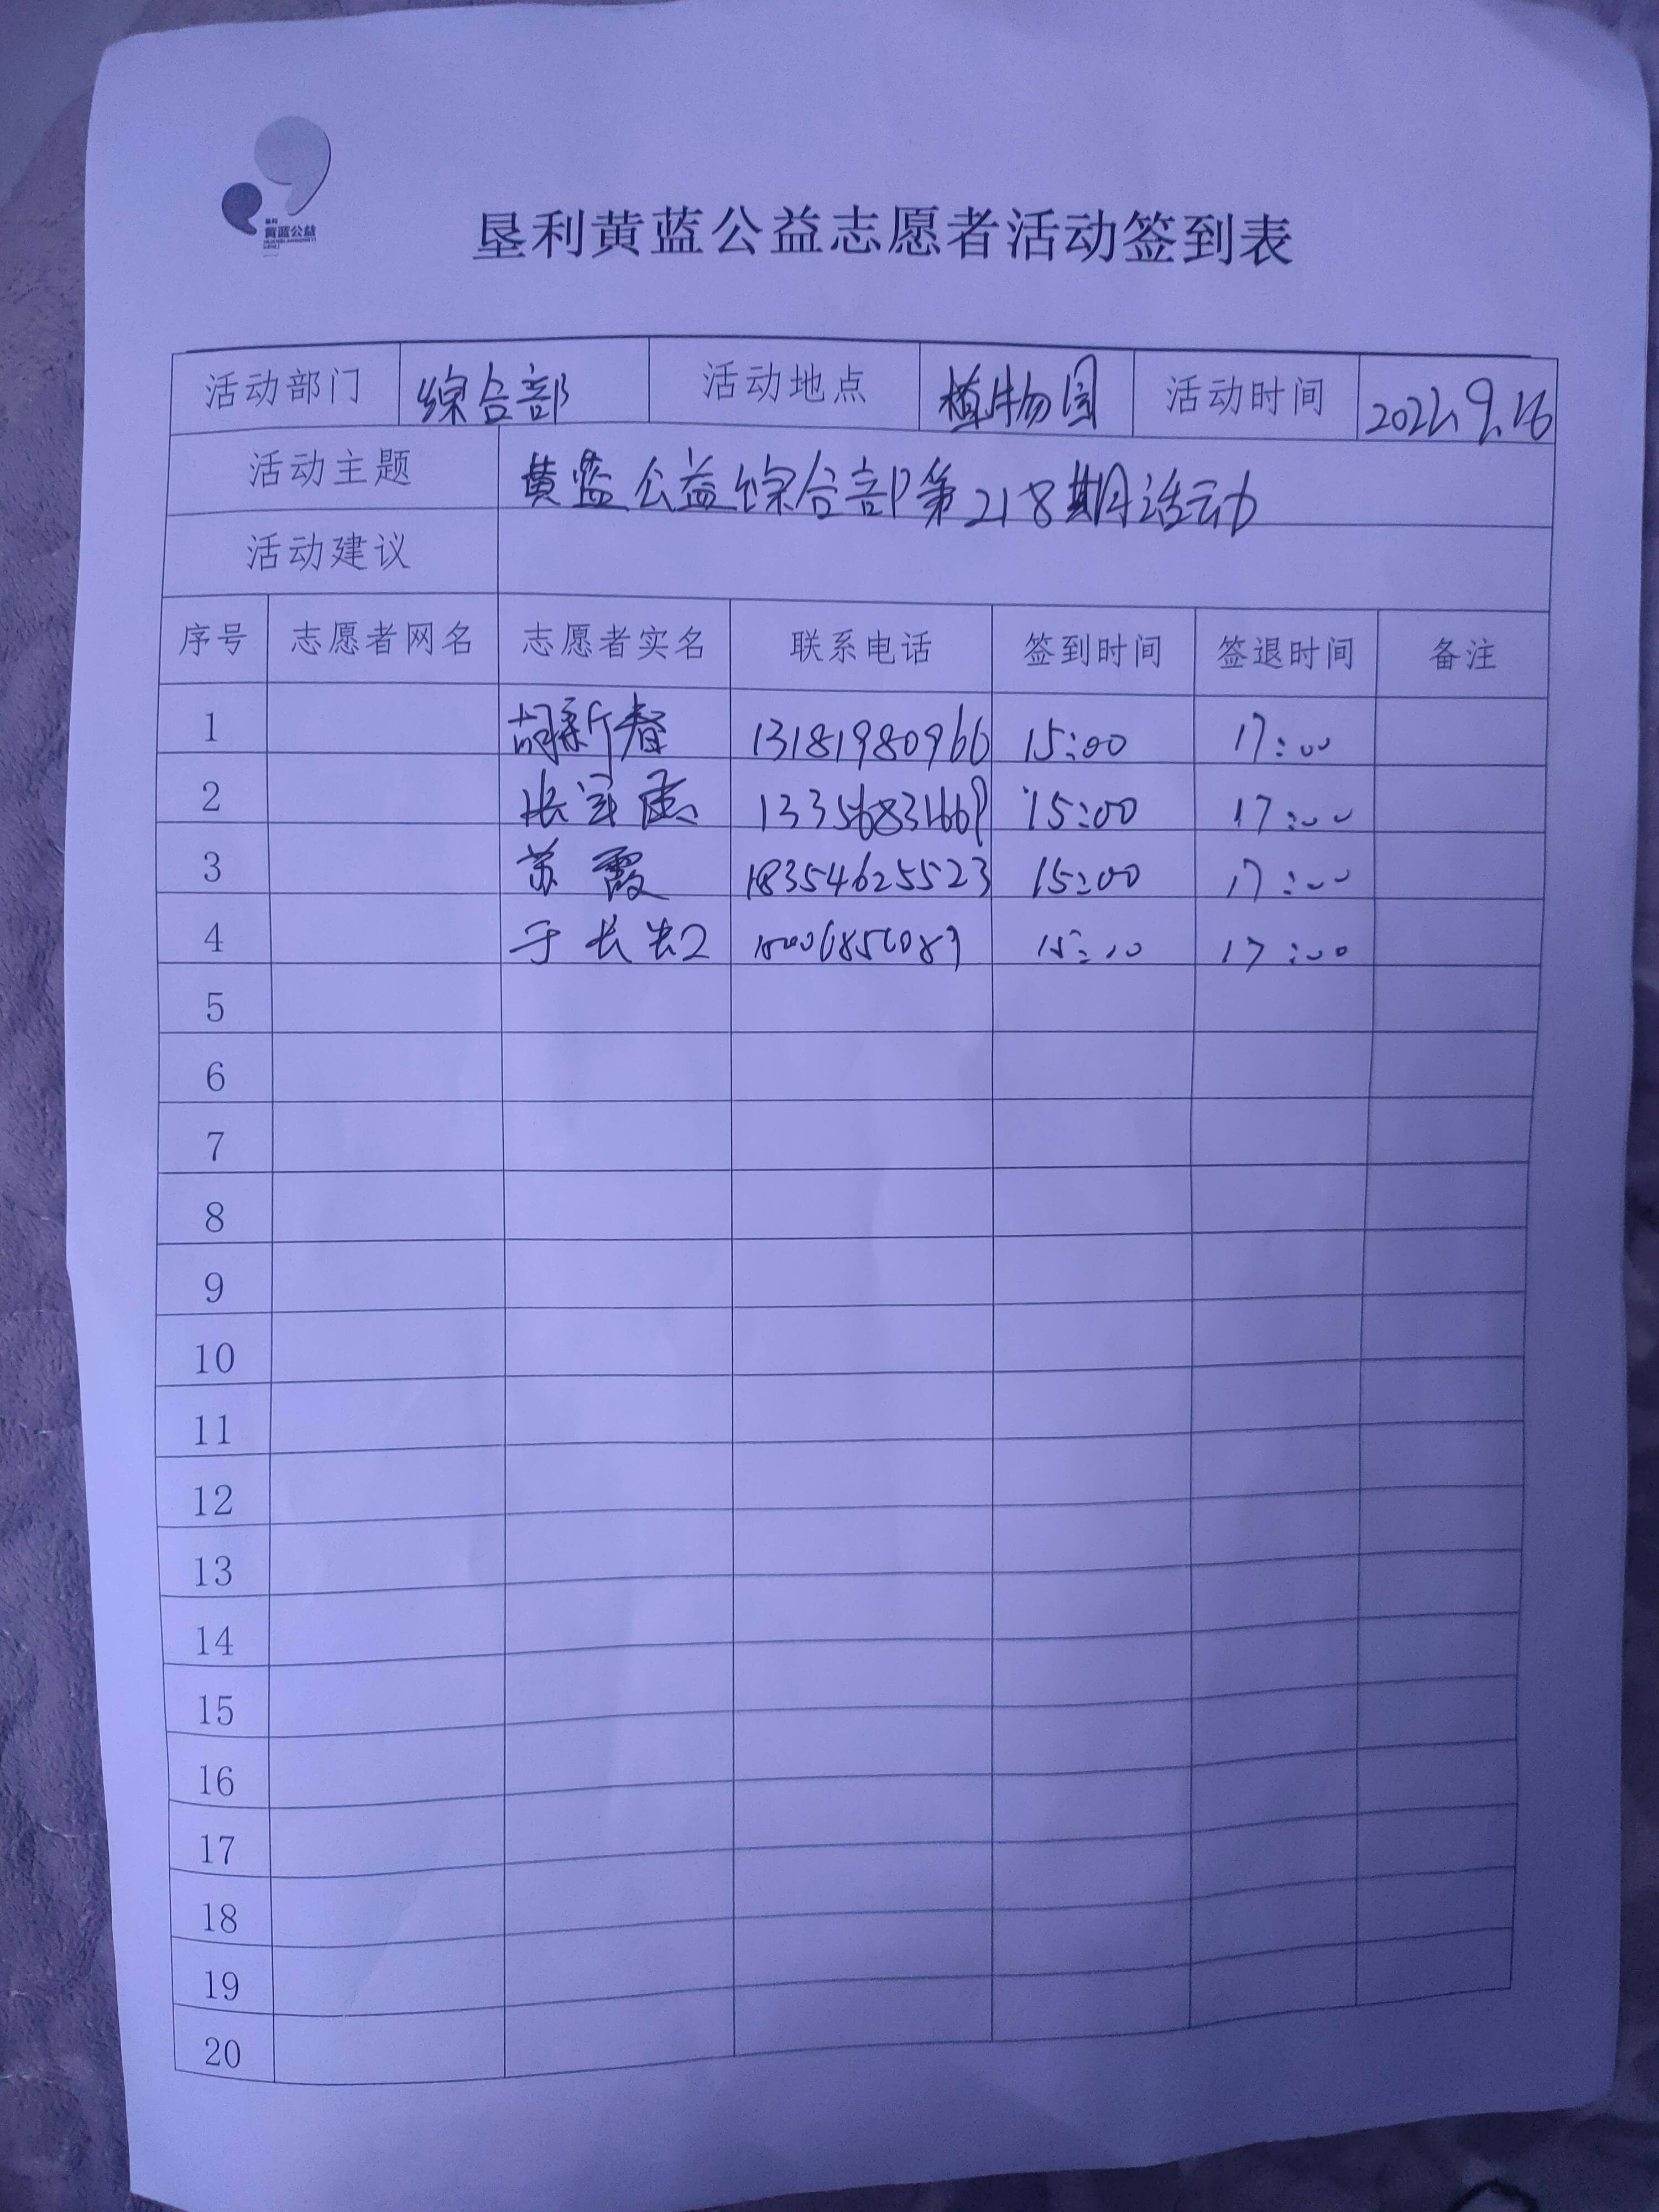 垦利
黄蓝公益
垦利黄蓝公益志愿者活动签到表
活动部门 综合部 活动地点 植物园 活动时间 2022.9.16
活动主题 黄蓝公益综合部第218期活动
活动建议
序号 志愿者网名 志愿者实名 联系电话 签到时间 签退时间 备注
1 胡新春 13181980966 15:00 17:00
2 15:00 17:00
3 苏霞 18354625523 15:00 17:00
4 于长 17:00
5
6
7
8
9
10
11
12
13
14
15
16
17
18
19
20